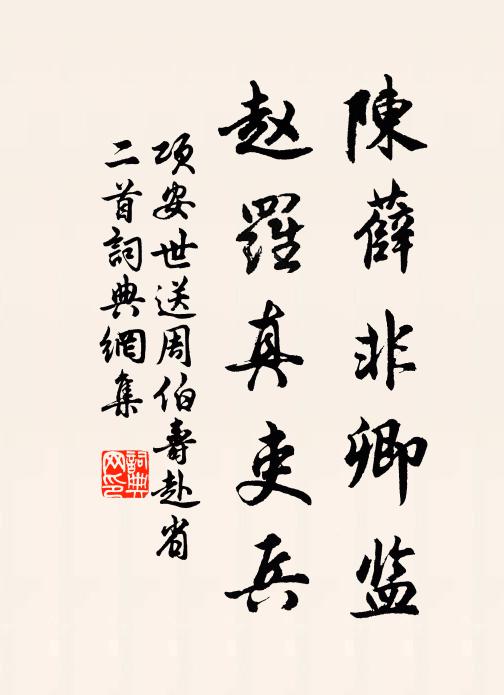 陳薛非卿監
赵羅真吏兵
项安世送周伯壽赴省
二首詞典網集
詞典
网印